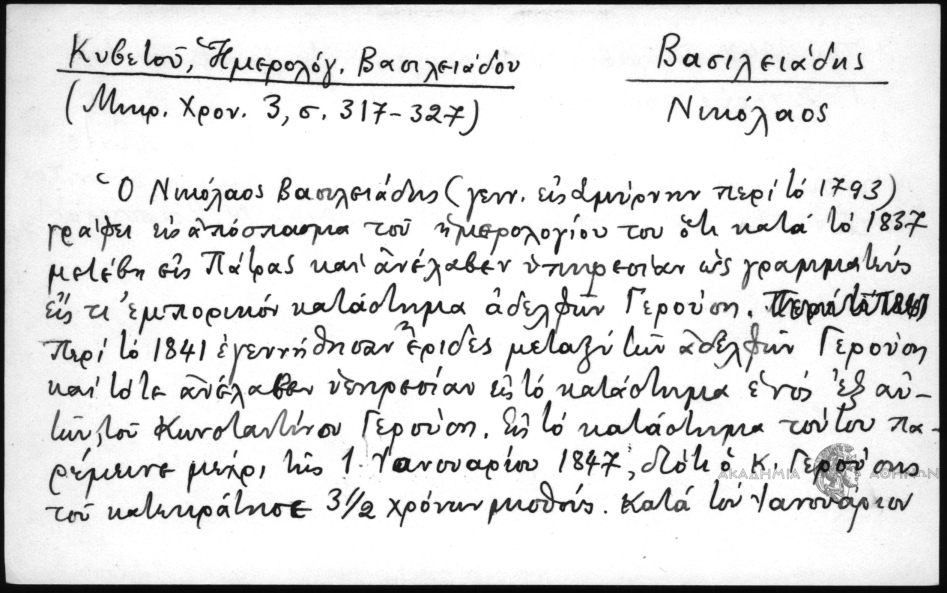 Κυβετοῦ, Ἡμερολόγ. Βασιλειάδου
(Μικρ. Χρον. 3, σ. 317-327)
Βασιλειάδης
Νικόλαος
Ὁ Νικόλαος Βασιλειάδης (γενν. εἰς Σμύρνην περί τό 1793)
γράφει εἰς ἀπόσπασμα τοῦ ἡμερολογίου του ὅτι κατά τό 1837
μετέβη εἰς Πάτρας καί ἀνέλαβεν ὑπηρεσίαν ὡς γραμματεύς
εἴς τι ἐμπορικόν κατάστημα ἀδελφῶν Γερούση.
Περί τό 1841 ἐγεννήθησαν ἔριδες μεταξύ τῶν ἀδελφῶν Γερούση
καί τότε ἀνέλαβεν ὑπηρεσίαν εἰς τό κατάστημα ἑνός ἐξ αὐ-
τῶν, τοῦ Κωνσταντίνου Γερούση. Εἰς τό κατάστημα τοῦτου πα-
ρέμεινε μέχρι τῆς 1 Ἰανουαρίου 1847, διότι ὁ Κ. Γερούσης
τοῦ κατεκράτησε 3 1/2 χρόνων μισθούς. Κατά τόν Ἰανουάριον
ΑΚΑΔΗΜΙΑ ΑΘΗΝΩΝ